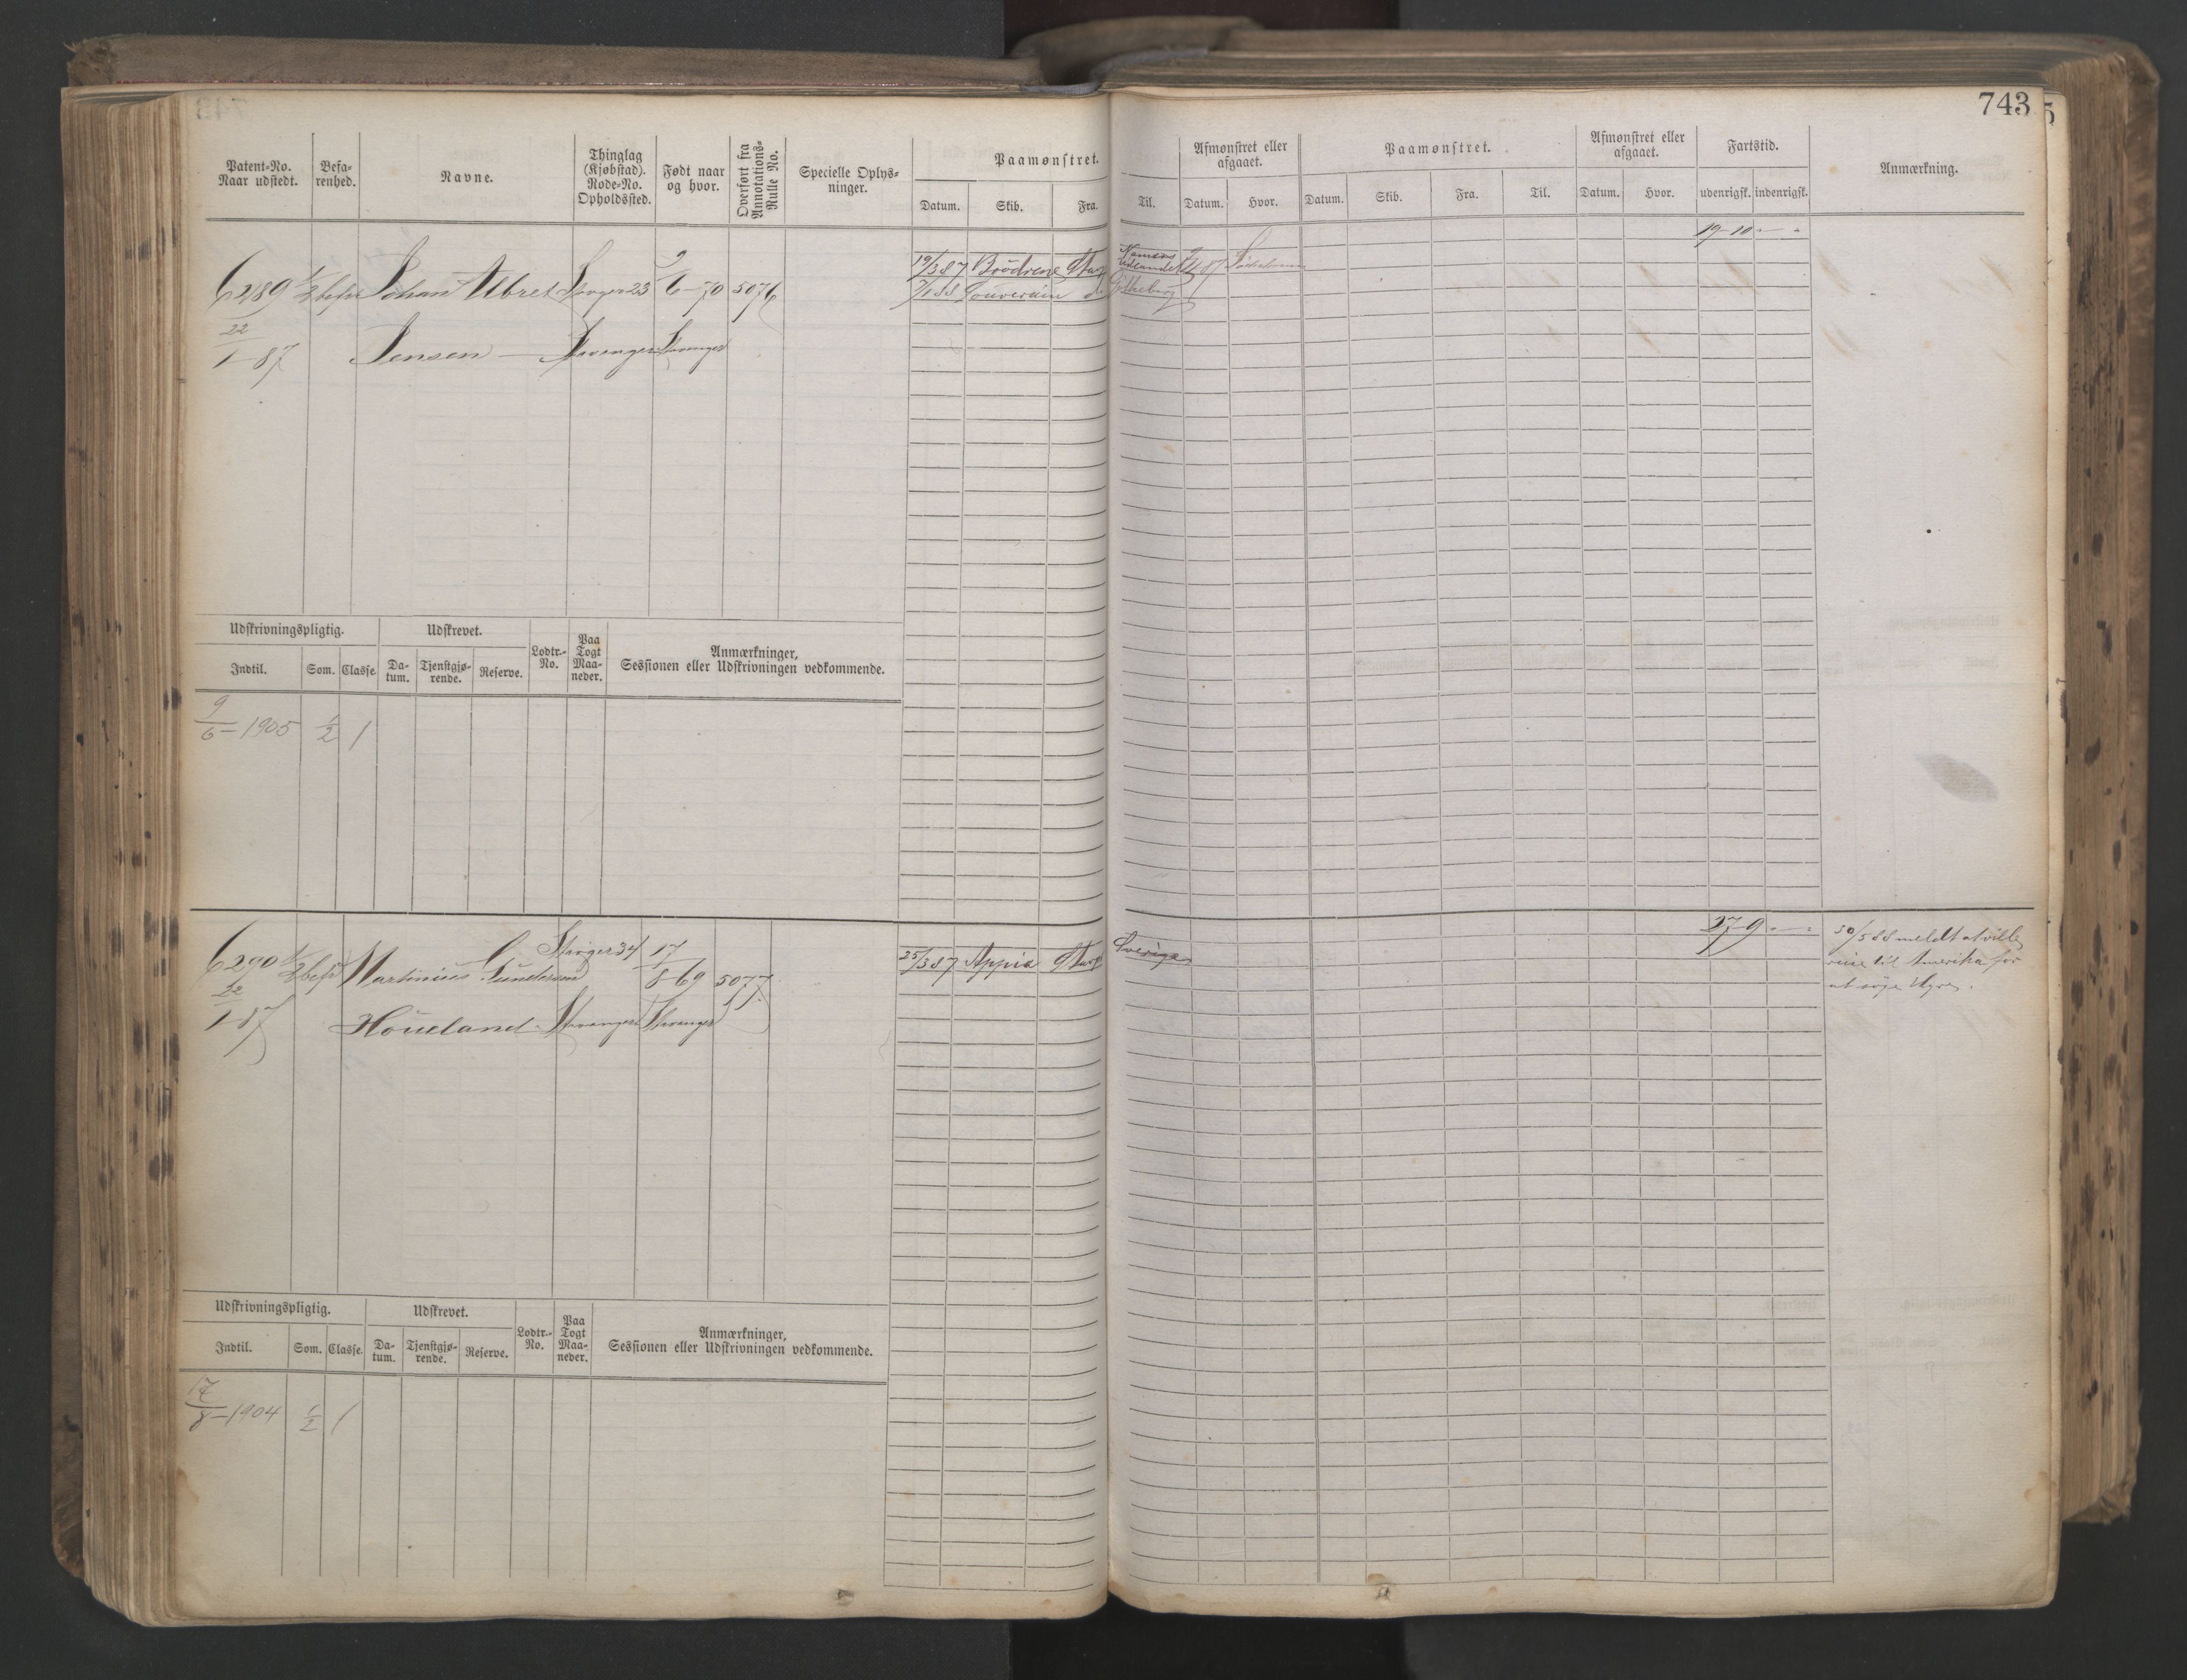 743
Patent-No. Naar udstedt.
Befa-renhed.
Navne.
Thinglag (Kjøbstad). Rode-No. Opholdssted.
Født naar og hvor.
Overført fra Annotations-Rulle No.
Specielle Oplys-ninger.
Paamønstret.
Datum. Skib. Fra. Til.
Afmønstret eller afgaaet.
Datum. Hvor.
Paamønstret.
Datum. Skib. Fra. Til.
Afmønstret eller afgaaet.
Datum. Hvor.
Fartstid.
udenrigsk. indenrigsk.
Anmærkning.
19-10 - -
6289 1/2 befr Johan Albret Stvger 23 9/6-70 5076
22/1-87 Jensen Stavanger Stavanger
19/3 87 Brödrene Stavg
Souverain do Götheborg
Udskrivningspligtig.
Udskrevet.
Indtil. Som. Classe.
Da-tum. Tjenstgjø-rende. Reserve.
Lodtr.-No.
Paa Togt Maa-neder.
Anmærkninger,
Sessionen eller Udskrivningen vedkommende.
9/6-1905 1/2 1
6290 1/2 befr Martinius G. Gundersen Stvger 34 17/8-69 5077
22/1-87 Houeland Stavanger Stavanger
25/3 87 Appia Stavg Sverige
27-9 - -
30/5 88 meldt at ville
reise til Amerika for
at söge Hyre.
Udskrivningspligtig.
Udskrevet.
Indtil. Som. Classe.
Da-tum. Tjenstgjø-rende. Reserve.
Lodtr.-No.
Paa Togt Maa-neder.
Anmærkninger,
Sessionen eller Udskrivningen vedkommende.
17/8-1904 1/2 1